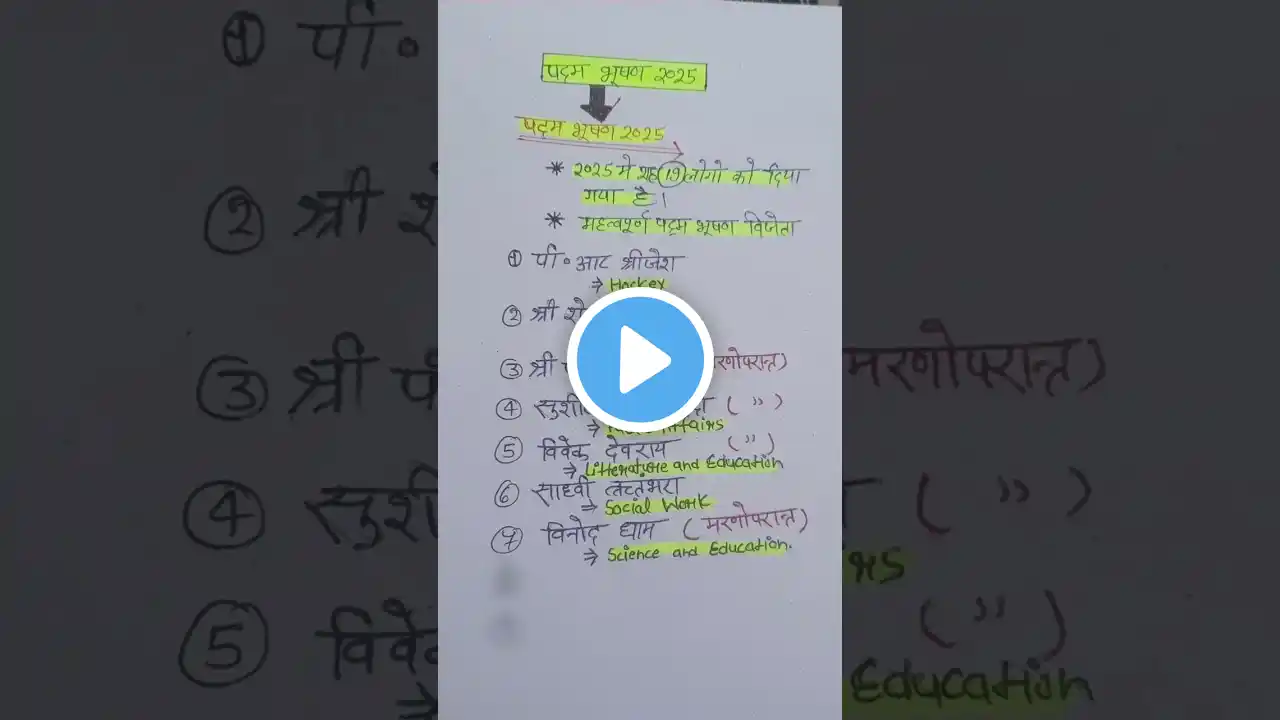 पद्म भूषण २०२5
पद्म भूषण २०२5
* २०२5 मे यह (19) लोगो को दिया
गया है।
* महत्वपूर्ण पद्म भूषण विजेता
① पी॰ आर श्रीजेश
⇒ Hockey
② श्री शे
③ श्री मरणोपरान्त)
④ सुशी ( '' )
⇒ Affairs
⑤ विवेक देवराय ( '' )
⇒ Litterature and Education
⑥ साध्वी
⇒ Social Work
⑦ विनोद धाम (मरणोपरान्त)
⇒ Science and Education.